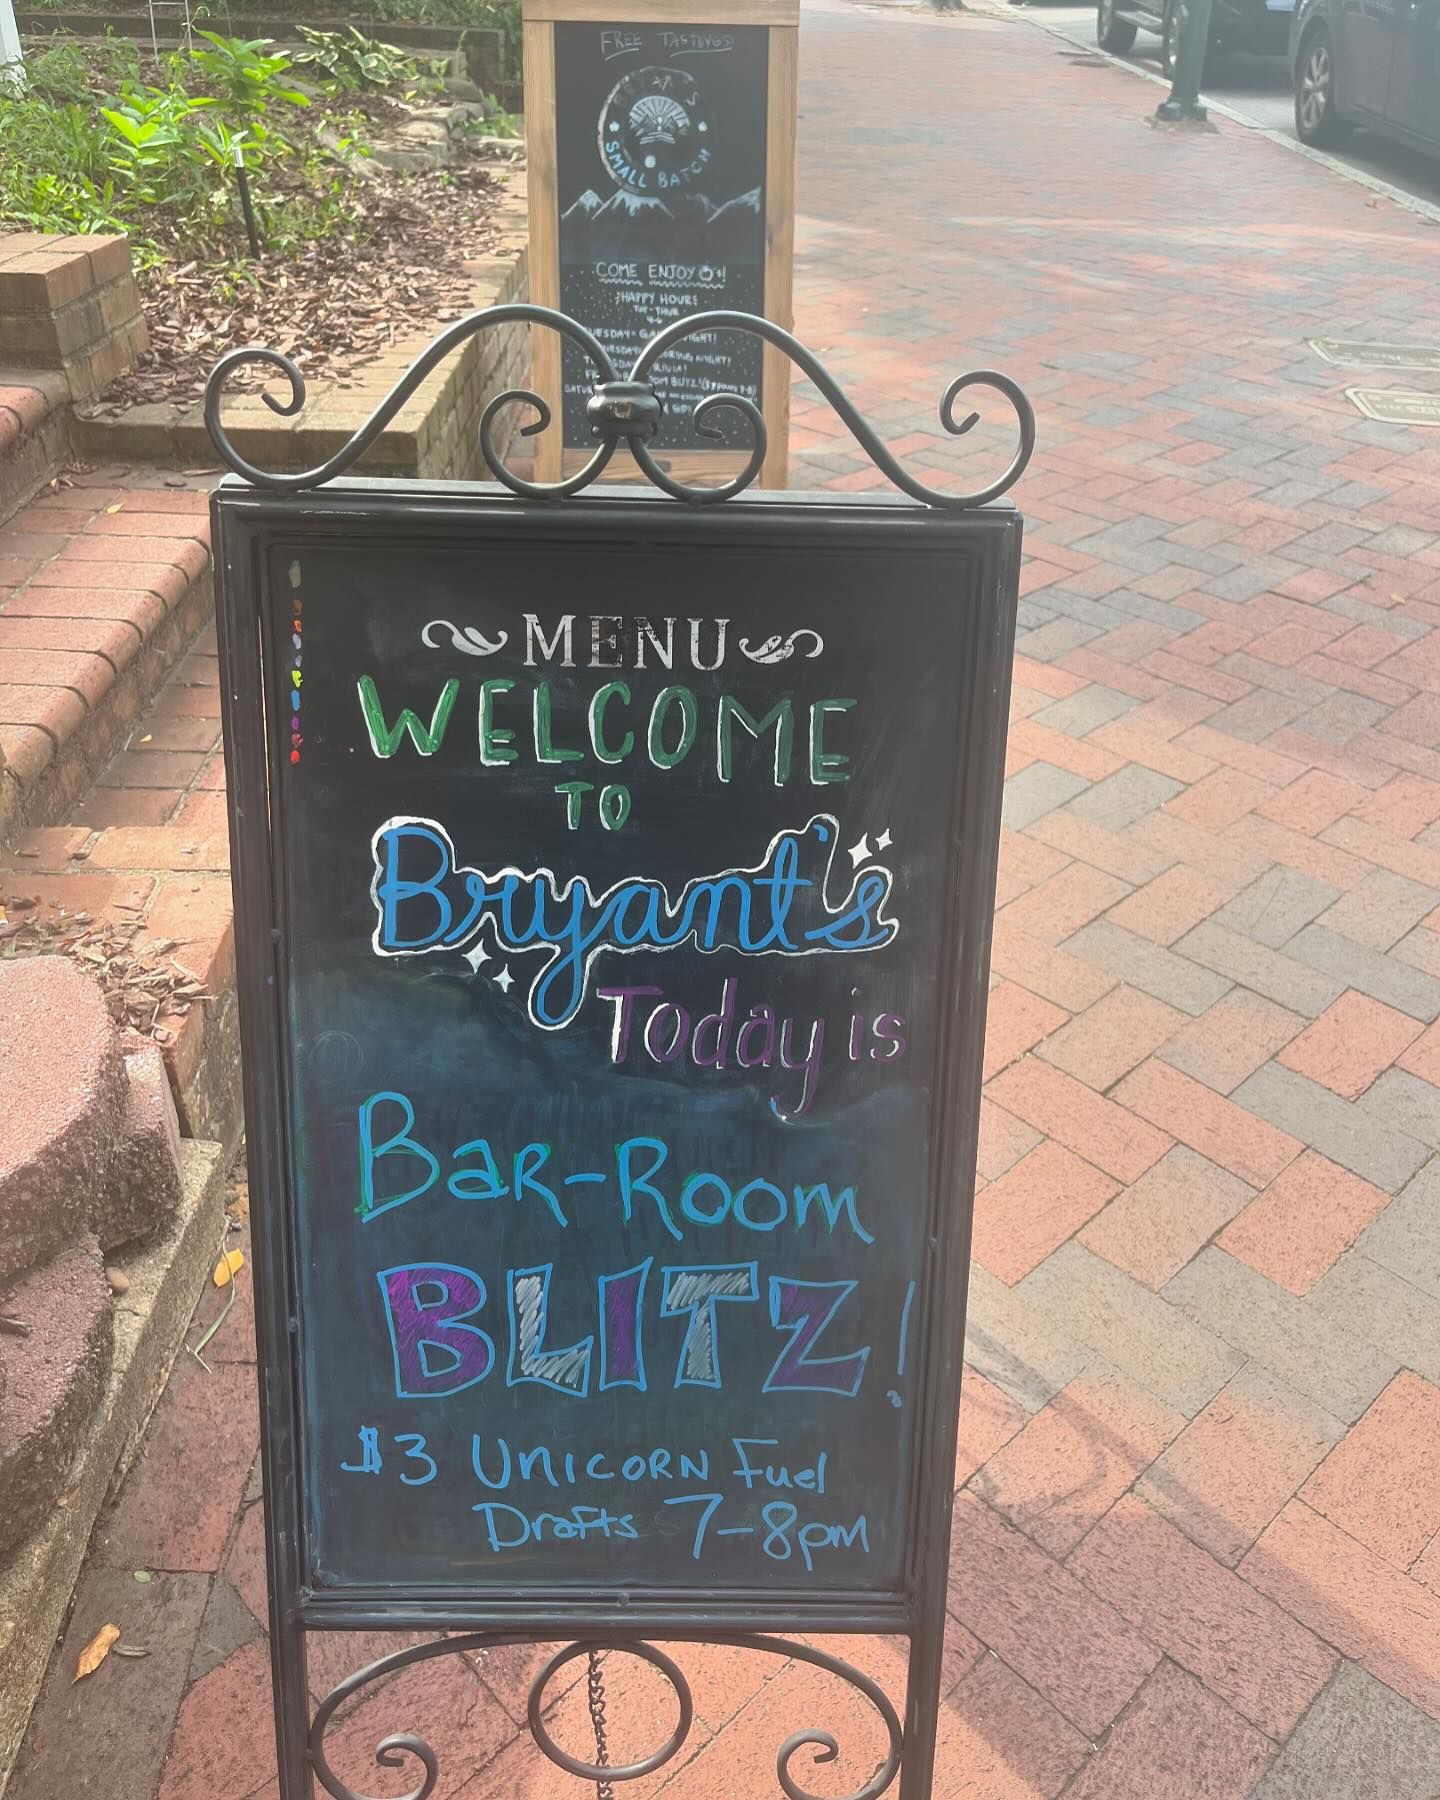 FREE TASTINGS
BRYANT'S
SMALL BATCH
COME ENJOY
HAPPY HOUR
TUE-THUR
4-6
MENU
WELCOME
TO
Bryant's
Today is
BAR-ROOM
BLITZ!
$3 UNICORN Fuel
Drafts 7-8pm